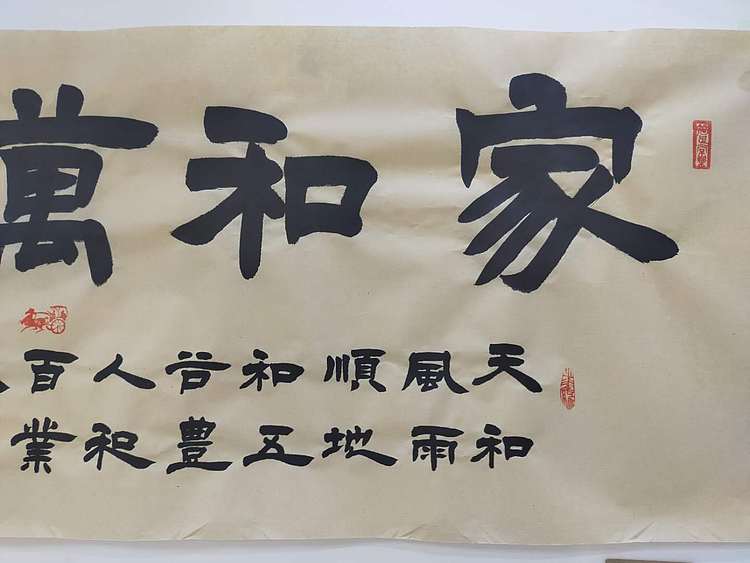 家和萬
天和
風雨
順地
和五
谷豐
人和
百業